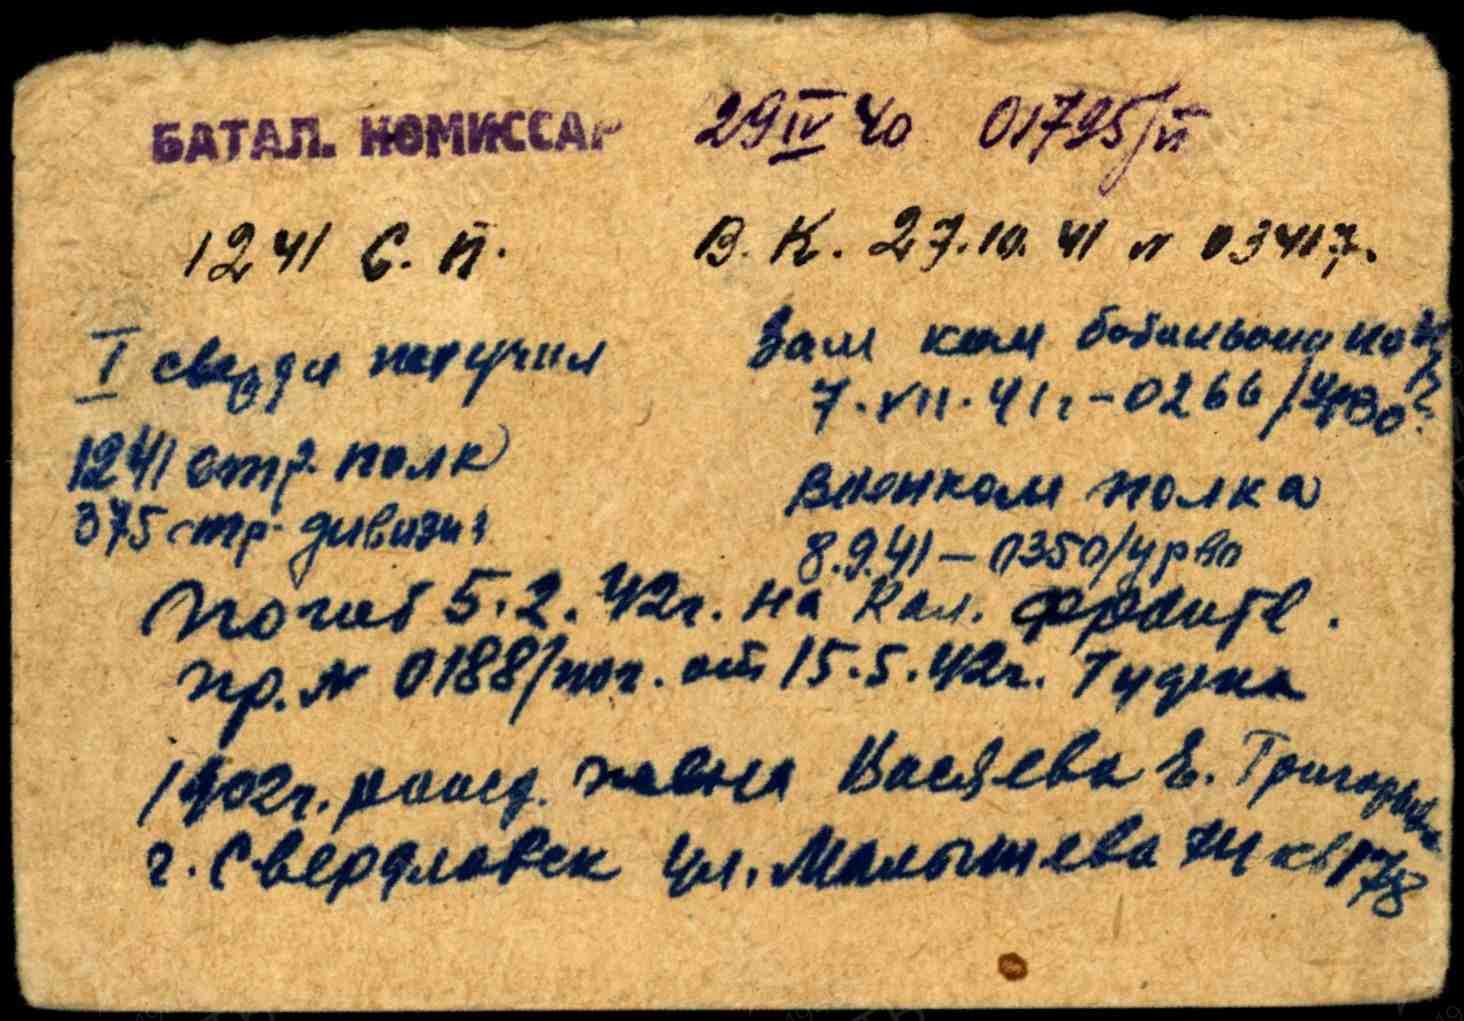 БАТАЛ. КОМИССАР 29 IV 40 01795/п
1241 С. П. В. К. 27.10.41 н 03417.
I получил
Зам ком батальона по
7.VII.41г-0266/УрВо
1241 стр. полк
375 стр. дивизия
Военком полка
8.9.41-0350/урво
Погиб 5.2.42г. на Кал. фронте.
пр. № 0188/пог. от 15.5.42г.
1902г. рожд. жена Е. Григорьевна
г. Свердловск ул. Малышева кв 178